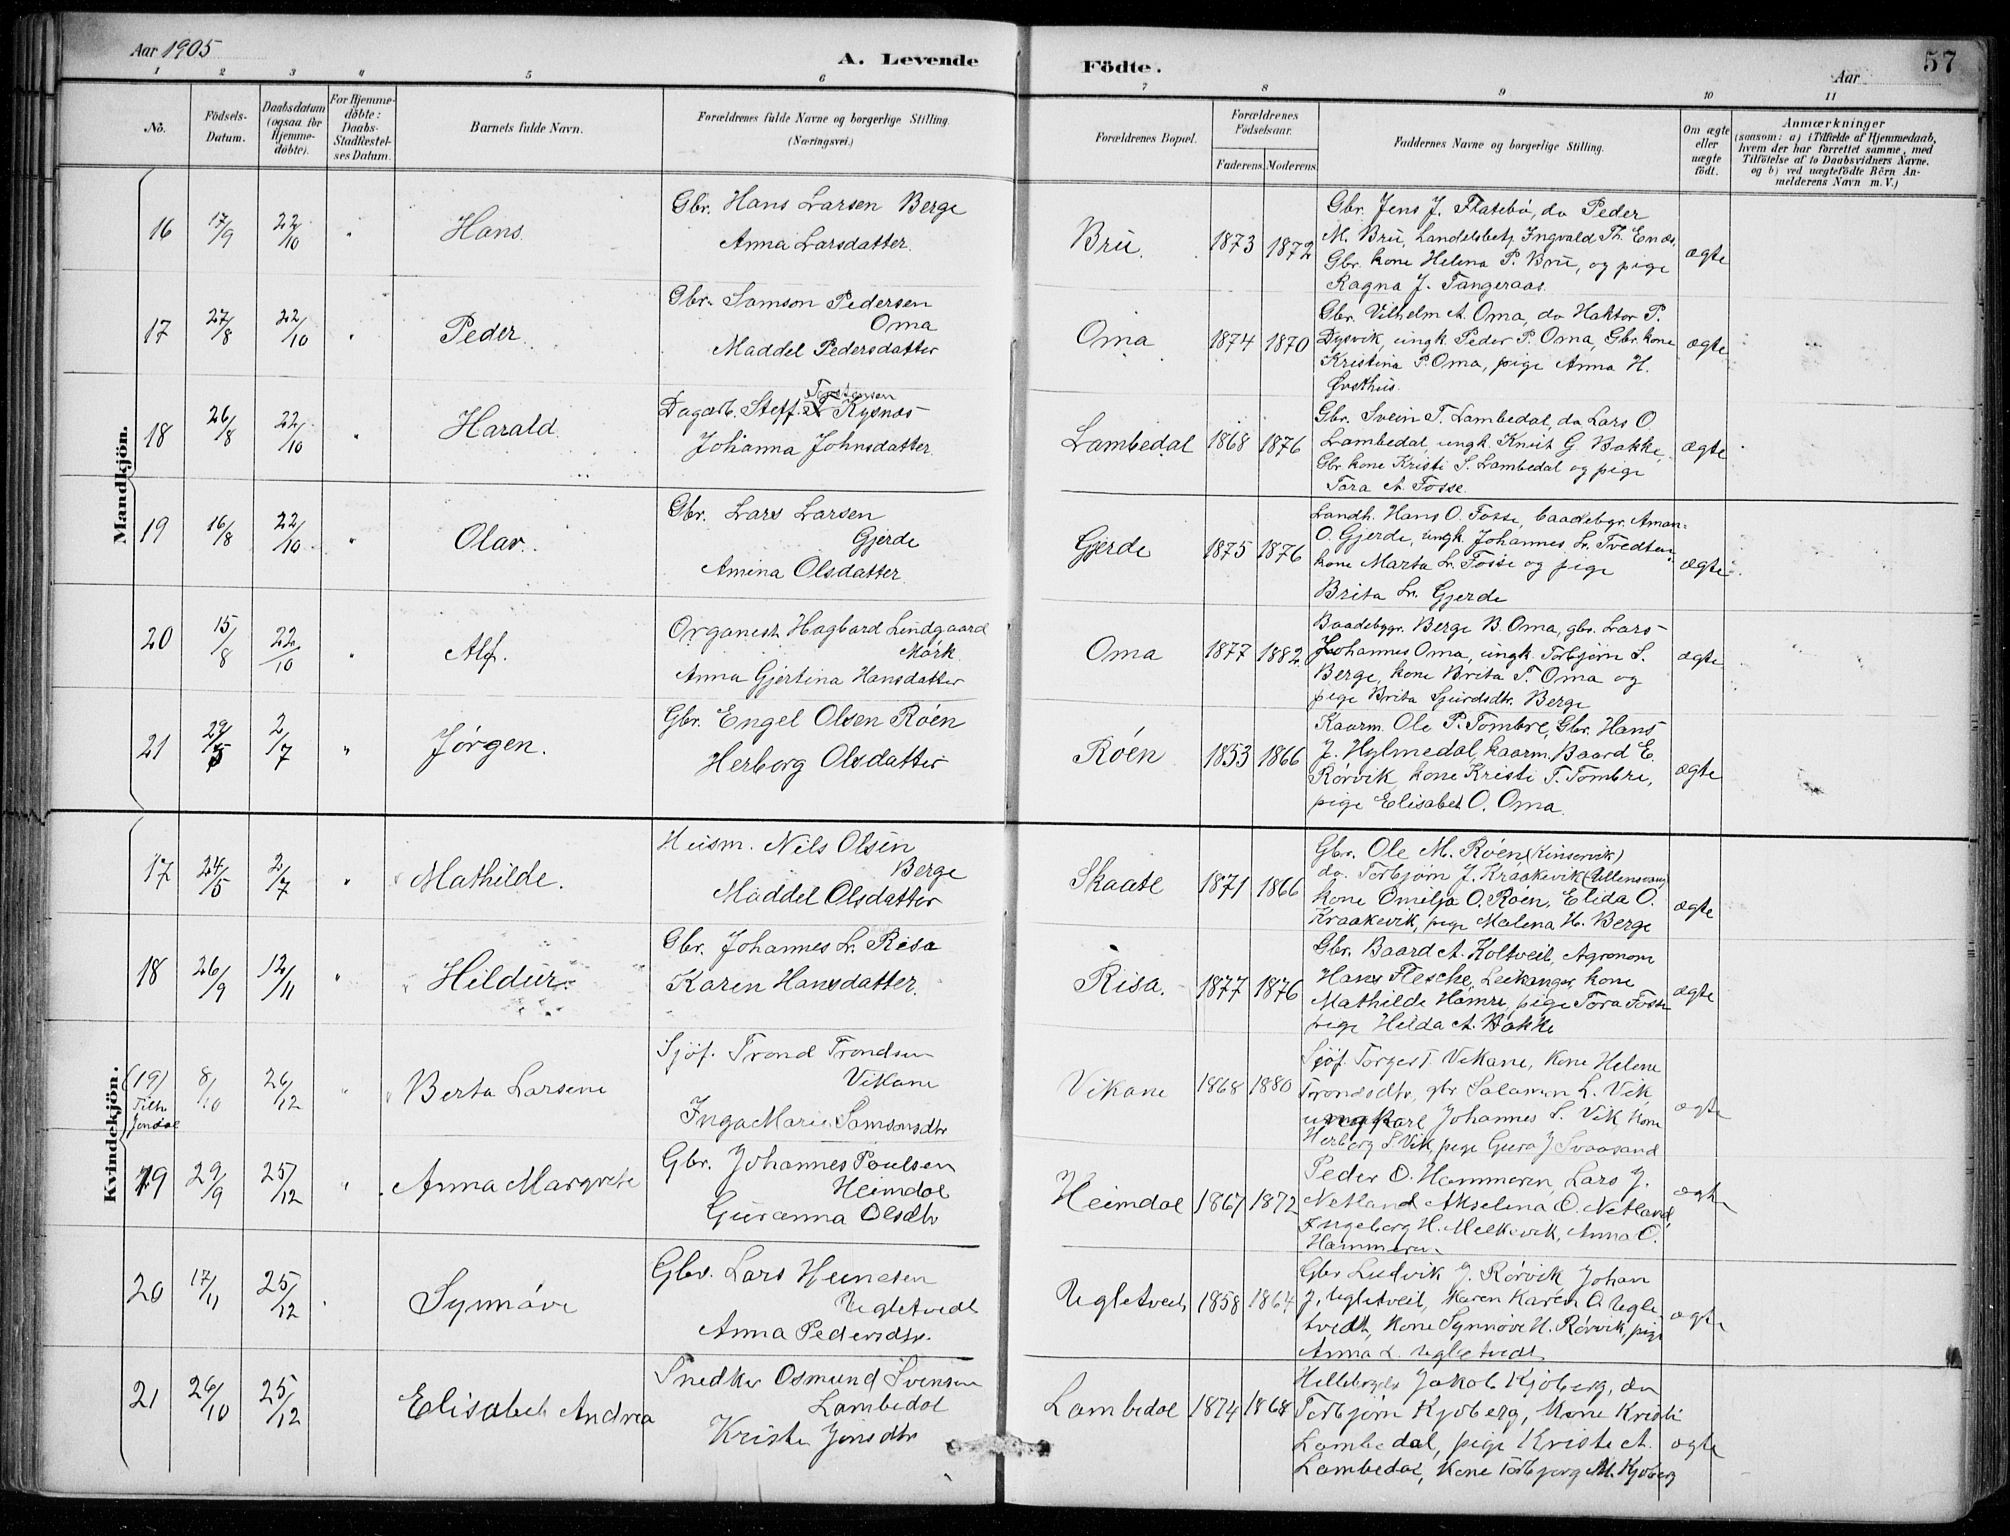 Aar 1905
A. Levende
Födte.
Aar
57
1 2 3 4 5 6 7 8 9 10 11
No.
Födsels-
Datum.
Daabsdatum
(ogsaa for
Hjemme-
döbte).
For Hjemme-
döbte:
Daabs-
Stadfæstel-
ses Datum.
Barnets fulde Navn.
Forældrenes fulde Navne og borgerlige Stilling.
(Næringsvei.)
Forældrenes Bopæl.
Forældrenes
Födselsaar.
Faderens. Moderens.
Faddernes Navne og borgerlige Stilling.
Om ægte
eller
uægte
födt.
Anmærkninger
(saasom: a) i Tilfælde af Hjemmedaab,
hvem der har forrettet samme, med
Tilföielse af to Daabsvidners Navne,
og b) ved uægtefödte Börn An-
melderens Navn m. V.)
Mandkjön.
16 17/9 22/10 " Hans
Gbr. Hans Larsen Berge
Anna Larsdatter.
Bru. 1873 1872
Gbr. Jens J. Flatebø, do Peder
M. Bru, Landelsbetj. Ingvald Th. Enæs,
Gbr. kone Helena P. Bru, og pige
Ragna J. Tangeraas.
ægte
17 27/8 22/10 " Peder
Gbr. Samson Pedersen
Oma
Maddel Pedersdatter
Oma 1874 1870
Gbr. Vilhelm A. Oma, do Haktor P.
Dysvik, ungk. Peder P. Oma, Gbr. kone
Kristina P. Oma, pige Anna H.
Øvsthus.
ægte
18 26/8 22/10 " Harald
Dagarb. Steff. Kysnæs
Johanna Johnsdatter
Lambedal 1868 1876
Gbr. Svein T. Lambedal, do Lars O.
Lambedal, ungk. Knut G. Bakke,
Gbr. kone Kristi S. Lambedal og pige
Tora A. Fosse.
ægte
19 16/8 22/10 " Olav.
Gbr. Lars Larsen
Gjerde
Amina Olsdatter
Gjerde 1875 1876
Landh. Hans O. Fosse, baadebgr. Aman-
O. Gjerde, ungk. Johannes L. Tvedten,
kone Marta L. Fosse og pige
Brita L. Gjerde
ægte
20 15/8 22/10 " Alf.
Organist Hagbard Lindgaard
Mørk
Anna Gjertina Hansdatter
Oma 1877 1882
Baadebygr. Berge B. Oma, gbr. Lars
Johannes Oma, ungk. Torbjørn S.
Berge, kone Brita T. Oma og
pige Brita Sjurdsdtr. Berge
ægte
21 29/5 2/7 " Jørgen.
Gbr. Engel Olsen Røen
Herborg Olsdatter
Røen 1853 1866
Kaarm. Ole P. Tombre, Gbr. Hans
J. Hylmedal, kaarm. Baard E.
Rørvik, kone Kristi T. Tombre,
pige Elisabet O. Oma.
ægte
Kvindekjön.
17 24/5 2/7 " Mathilde.
Husm. Nils Olsen
Berge
Maddel Olsdatter
Skaate 1871 1866
Gbr. Ole M. Røen (Kinservik)
do. Torbjørn J. Kraakevik (Ullensvang)
kone Omilja O. Røen, Elida O.
Kraakevik, pige Malena H. Berge
ægte
18 26/9 12/11 " Hildur.
Gbr. Johannes L. Risa
Karen Hansdatter.
Risa. 1877 1876
Gbr. Baard A. Koltveit, Agronom
Hans Flesche, Leikanger, kone
Mathilde Hamre, pige Tora Fosse
pige Hilda A. Bakke
ægte
(19) 8/10 26/12 " Berta Larsine
Tilh.
Jondal
Sjöf. Trond Trondsen
Vikane
Inga Marie Samsonsdtr
Vikane 1868 1880
Sjöf. Torger T. Vikane, Kone Helene
Tronsdtr, gbr Salamon L. Vik,
ungkarl Johannes S. Vik, Kone
Herborg S. Vik, pige Guro J Svaasand
ægte
19 29/9 25/12 " Anna Margrete
Gbr. Johannes Poulsen
Heimdal
Guranna Olsdtr
Heimdal 1867 1872
Peder O. Hammeren, Lars J.
Netland, Akselina O. Netland,
Ingeborg H. Melkevik, Anna O.
Hammeren
ægte
20 17/11 25/12 Synnøve
Gbr. Lars
Ugletvedt
Anna Pedersdtr.
Ugletveit 1858 1864
Gbr Ludvik J. Rørvik Johan
J. Ugletveit, Karen O. Ugle
tvedt, Kone Synnøve H. Rørvik, pige
Anna L. Ugletvedt
ægte
21 26/10 25/12 Elisabet Andrea
Snedker Osmund Svensen
Lambedal
Kriste Jonsdtr
Lambedal 1874 1868
Jakob Kjøberg, do
Torbjørn Kjøberg, Kone Kristi
Lambedal, pige Kriste A.
Lambedal, Kone Torbjørg M. Kjøberg
ægte